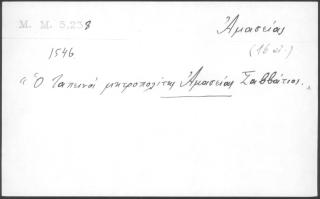 M. M. 5.238
Ἀμασείας
(16 αἰ.)
1546
"Ὁ Ταπεινὸς μητροπολίτης Ἀμασείας Σαββάτιος.